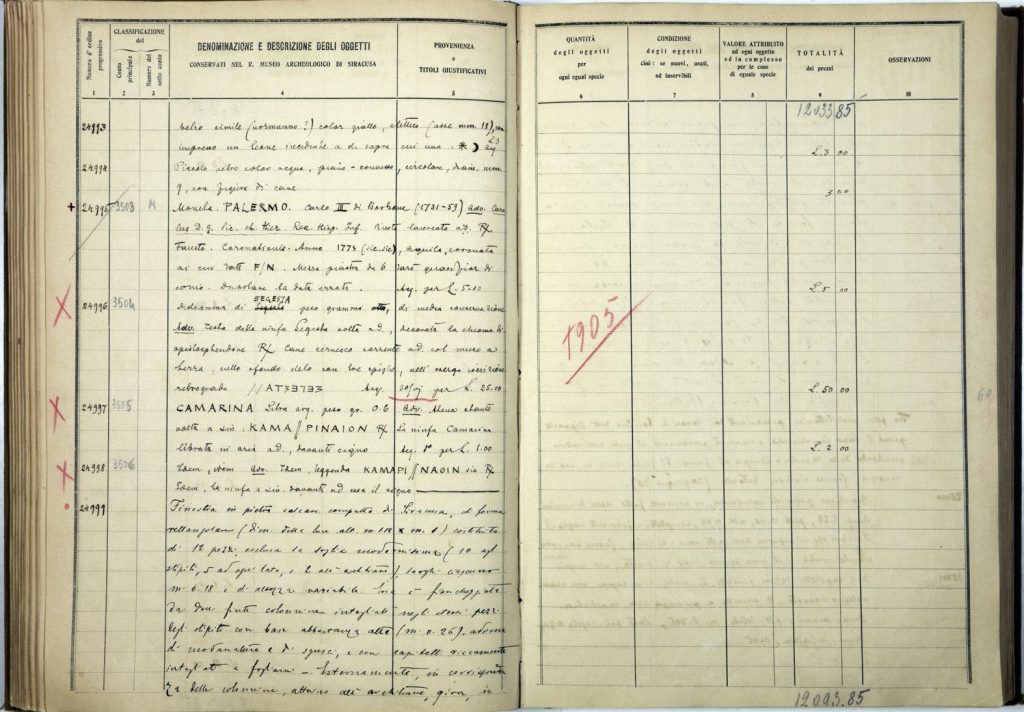 Numero d'ordine progressivo
CLASSIFICAZIONE del
Conto principale
Numero del sotto conto
DENOMINAZIONE E DESCRIZIONE DEGLI OGGETTI
CONSERVATI NEL R. MUSEO ARCHEOLOGICO DI SIRACUSA
PROVENIENZA
E
TITOLI GIUSTIFICATIVI
1 2 3 4 5
24993 vetro simile (normanno?) color giallo, elittico (asse mm. 18), con
impresso un leone incedente a d. sopra cui una * ☽ Acq. L. 3
24994 Piccolo vetro color acqua, piano-convesso, circolare, diam. mm.
9, con figura di cane
+ 24995 3503 M Moneta. PALERMO. Carlo III di Borbone (1731-59) Adv. Caro
lus D. g. Sic. et Hier. Rex. Hisp. Inf. Busto laureato a d. R/
Fausto. Coronationis. Anno 1773 (sic. sic), aquila, coronata
ai cui lati F/N. Mezza piastra da 6 tarì
conio. la data errata. Acq. per L. 5.00
X 24996 3504 Didramma di SEGESTA peso grammi otto, di media conservazione
Adv. Testa della ninfa Segesta volta a d., decorata la chioma di
opistosphendone R/ Cane cirneco corrente a d. col muso a
terra, nello sfondo dello con tre spighe, nell'esergo iscrizione
retrograda //AT33733 Acq. 30/vj per L. 25.00
X 24997 3505 CAMARINA Litra arg. peso gr. 0.6 Adv. Atena stante
volta a sin: KAMA//PINAION R/ La ninfa Camarina
librata in aria a d., davanti cigno Acq. per L. 1.00
X 24998 3506 Idem, idem Adv. Idem, leggenda KAMAPI//NAOIN sic R/
Idem, la ninfa a sin. davanti ad essa il cigno
24999 Finestra in pietra calcare compatta di Siracusa, di forma
rettangolare (dim. della luce alt. m. 1.18 x m. 1) costituita
di 12 pezzi, esclusa la soglia modernissima (10 agli
stipiti, 5 ad ogni lato, e 2 all'architrave) larghi ciascuno
m. 0.18 e di altezza variabile. Essa è fiancheggiata
da due finte colonnine intagliate negli stessi pezzi
degli stipiti con base abbastanza alta (m. 0.26), adorna
di modanature e di sgusci, e con capitelli riccamente
intagliati a fogliami - Esternamente, in corrisponden
za delle colonnine, attorno all'architrave, gira, in
QUANTITÀ
degli oggetti
per
ogni egual specie
CONDIZIONE
degli oggetti
cioè: se nuovi, usati,
od inservibili
VALORE ATTRIBUITO
ad ogni oggetto
ed in complesso
per le cose
di eguale specie
TOTALITÀ
dei prezzi
OSSERVAZIONI
6 7 8 9 10
12033.85
L. 3 00
3.00
L. 5 00
1905
L. 50.00
60
L. 2 00
12093.85